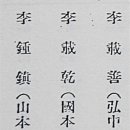 李載善(弘中
李載乾(國本
李鍾鎭(山本